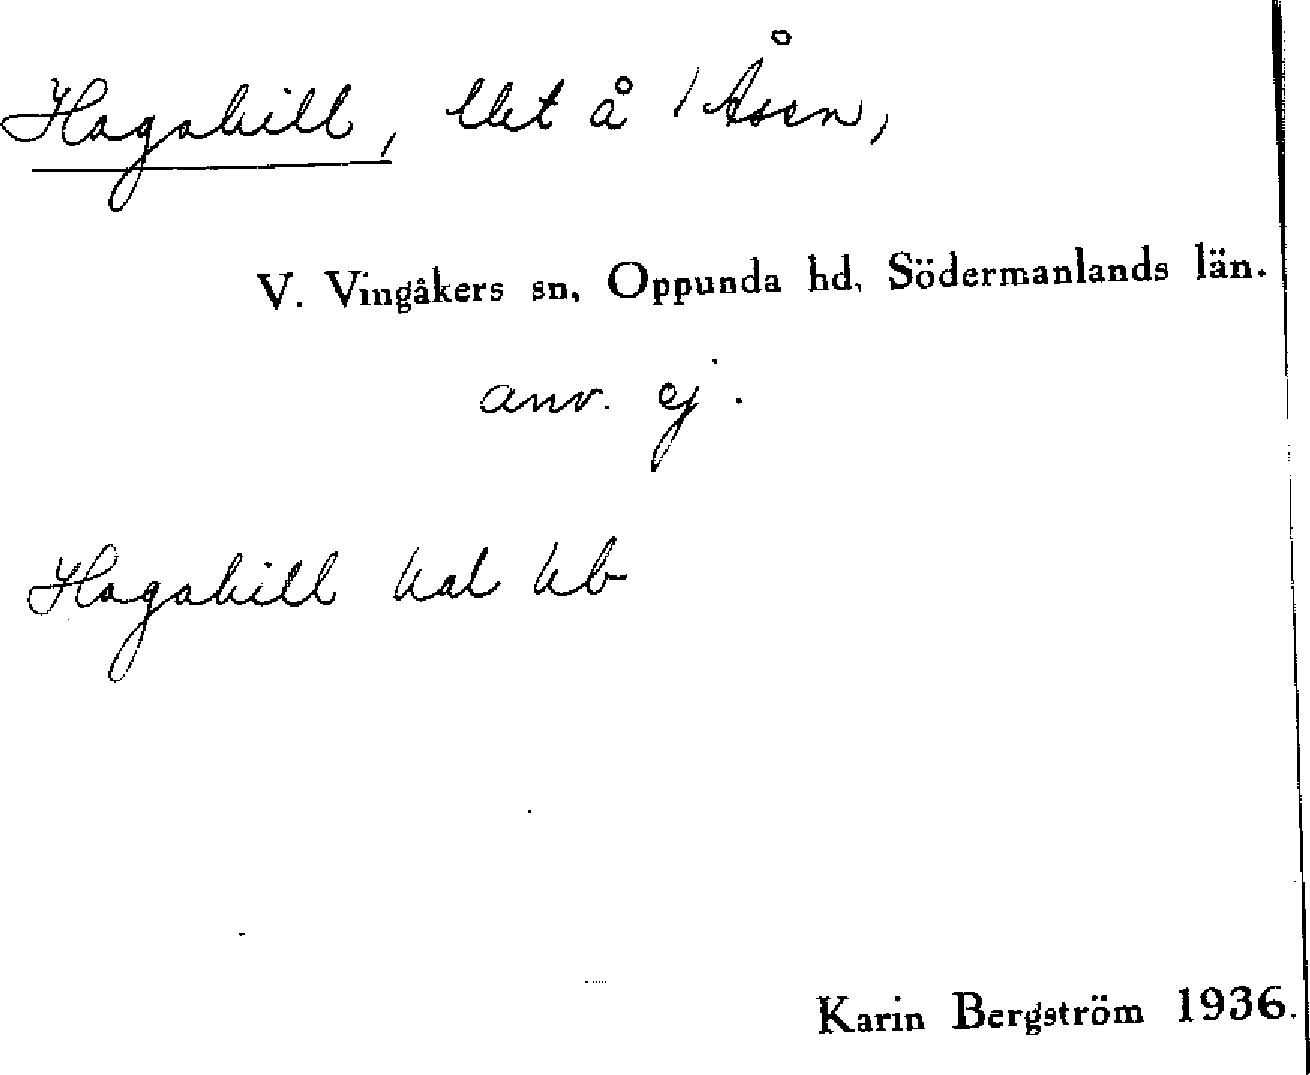 Hagahill, lht å 1 Åsen,
V. Vingåkers sn, Oppunda hd, Södermanlands län.
anv. ej.
Hagahill kal kb
Karin Bergström 1936.